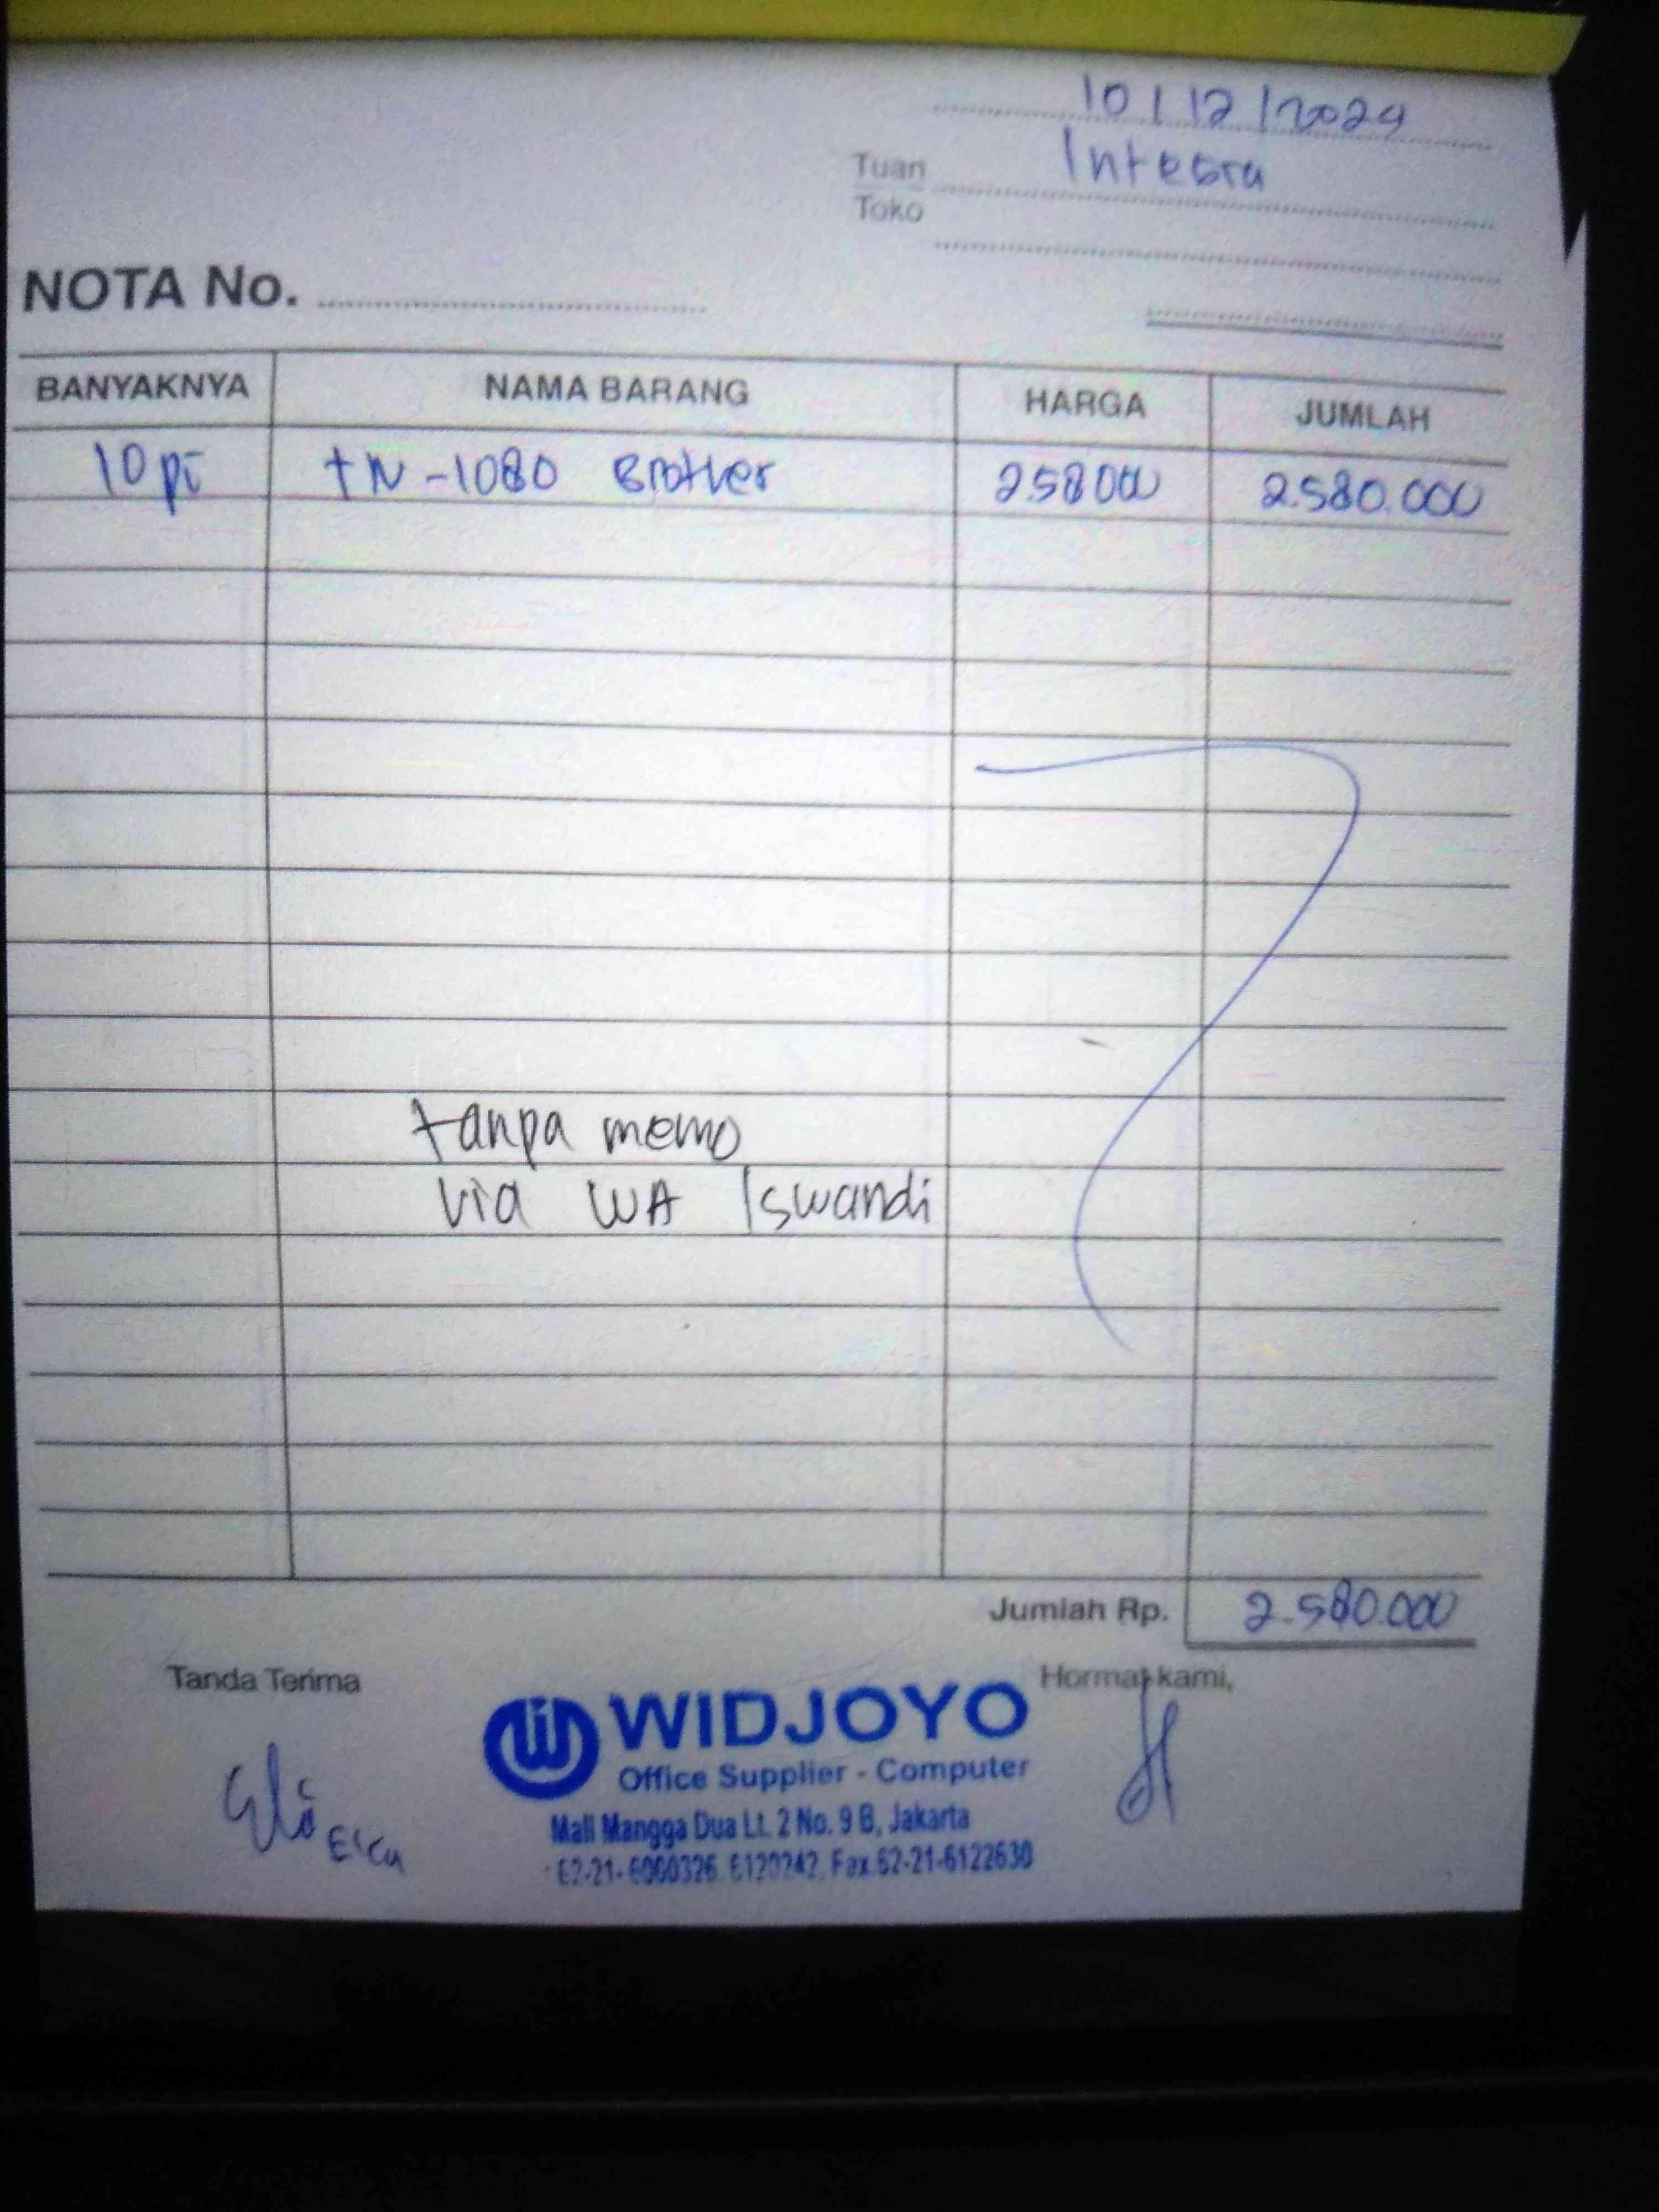 10/12/2024
Tuan Integra
Toko
NOTA No.
BANYAKNYA NAMA BARANG HARGA JUMLAH
10 pc TN-1080 Brother 258000 2.580.000
tanpa memo
via WA Iswandi
Jumlah Rp. 2.580.000
Tanda Terima Hormat kami,
WIDJOYO
Office Supplier - Computer
Mall Mangga Dua Lt. 2 No. 9 B, Jakarta
62-21- Fax.62-21-6122630